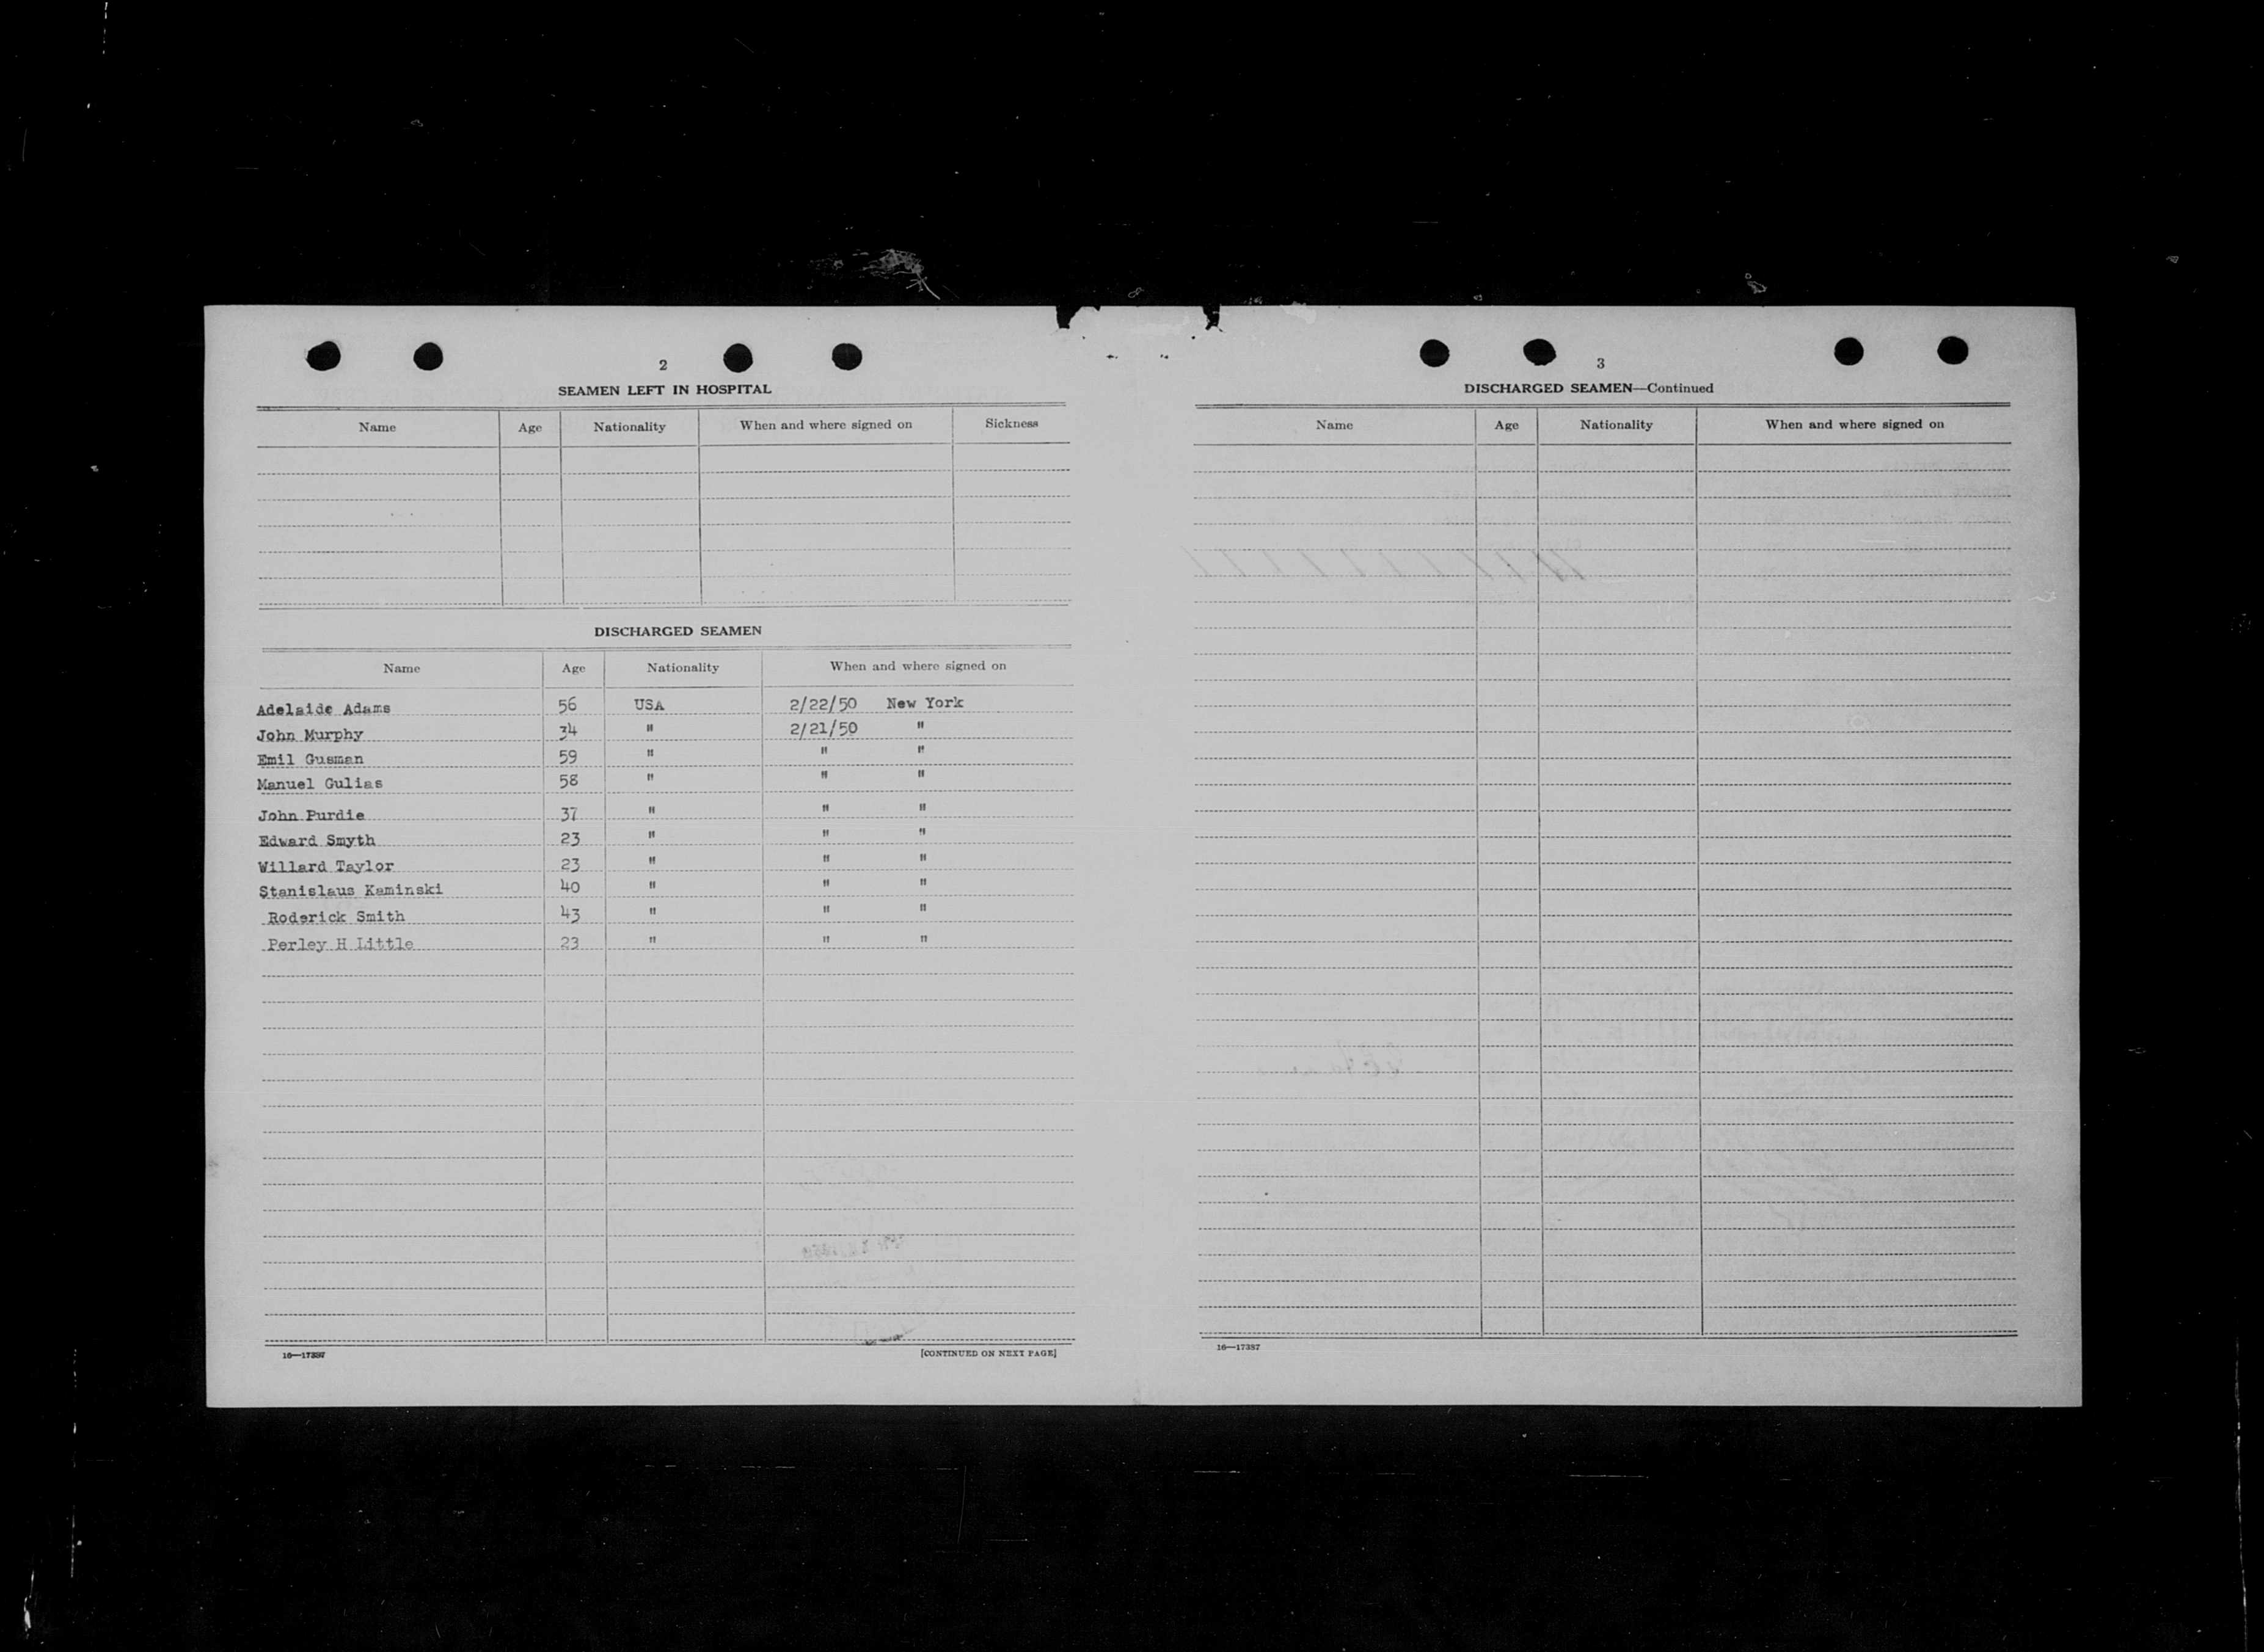 2
SEAMEN LEFT IN HOSPITAL
Name Age Nationality When and where signed on Sickness
DISCHARGED SEAMEN
Name Age Nationality When and where signed on
Adelaide Adams 56 USA 2/22/50 New York
John Murphy 34 " 2/21/50 "
Emil Gusman 59 " " "
Manuel Gulias 58 " " "
John Purdie 37 " " "
Edward Smyth 23 " " "
Willard Taylor 23 " " "
Stanislaus Kaminski 40 " " "
Roderick Smith 43 " " "
Perley H Little 23 " " "
16—17387
[CONTINUED ON NEXT PAGE]
3
DISCHARGED SEAMEN—Continued
Name Age Nationality When and where signed on
16—17387